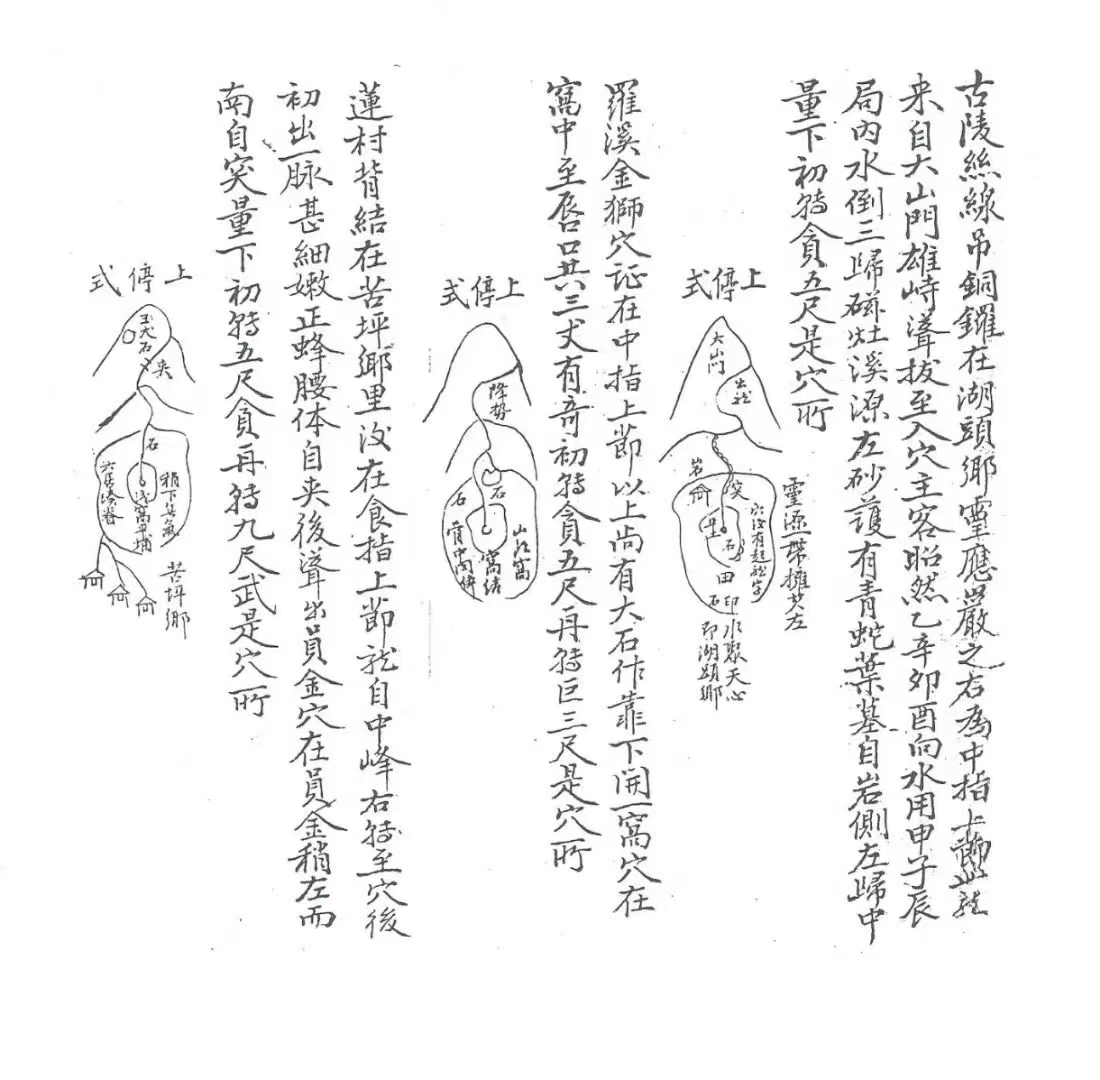 古陵絲線吊銅鑼在湖頭鄉靈應嚴之右為中指上節此龍
来自大山門雄峙聳拔至入穴主客昭然乙辛卯酉向水用申子辰
局内水倒三歸磁灶溪源左砂護有青蛇葉墓自岩側左歸中
量下初轉貪五尺是穴所
上停式
大山門
出龍
岩
突
穴後有起龍字
石
田
印石
水聚天心
即湖頭鄉
靈源一帶擁其左
羅溪金獅穴証在中指上節以上尚有大石作靠下開一窩穴在
窩中至唇口共三丈有奇初轉貪五尺再轉巨三尺是穴所
上停式
降勢
石
石
窩結
蓮村背結在苦坪鄉里汶在食指上節龍自中峰右轉至穴後
初出一脉甚細嫩正蜂腰体自夹後聳出員金穴在員金稍左而
南自突量下初轉五尺貪再轉九尺武是穴所
上停式
大石
夹
石
苦坪鄉